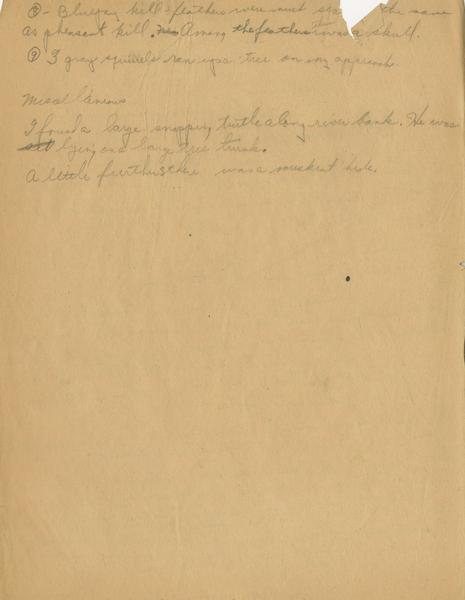 ⑧ - Bluejay kill - feathers were most the same
as pheasant kill. Among the feathers was a skull.
⑨ 3 gray squirrels ran up a tree on my approach.
Miscellaneous
I found a large snapping turtle along river bank. He was
lying on a large tree trunk.
A little further there was a muskrat hole.